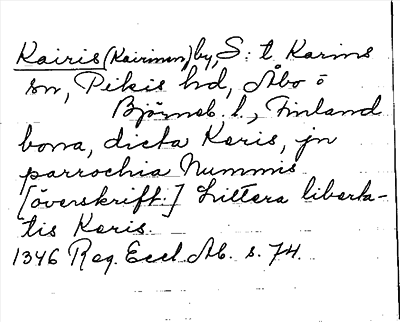 Kairis (Kairinen) by, S:t Karins
sn, Pikis hd, Åbo o
Björneb. l., Finland
bona, dicta Keris, jn
parrochia Nummis
[överskrift:] Littera liberta-
tis Keris.
1346 Reg. Eccl. Ab. s. 74.